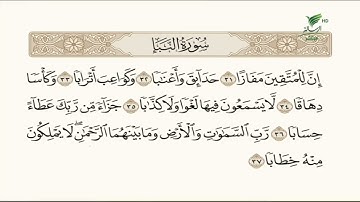 سُورَةُ النَّبَإِ
إِنَّ لِلْمُتَّقِينَ مَفَازًا ٣١ حَدَآئِقَ وَأَعْنَٰبًا ٣٢ وَكَوَاعِبَ أَتْرَابًا ٣٣ وَكَأْسًا
دِهَاقًا ٣٤ لَّا يَسْمَعُونَ فِيهَا لَغْوًا وَلَا كِذَّٰبًا ٣٥ جَزَآءً مِّن رَّبِّكَ عَطَآءً
حِسَابًا ٣٦ رَّبِّ ٱلسَّمَٰوَٰتِ وَٱلْأَرْضِ وَمَا بَيْنَهُمَا ٱلرَّحْمَٰنِ ۖ لَا يَمْلِكُونَ
مِنْهُ خِطَابًا ٣٧